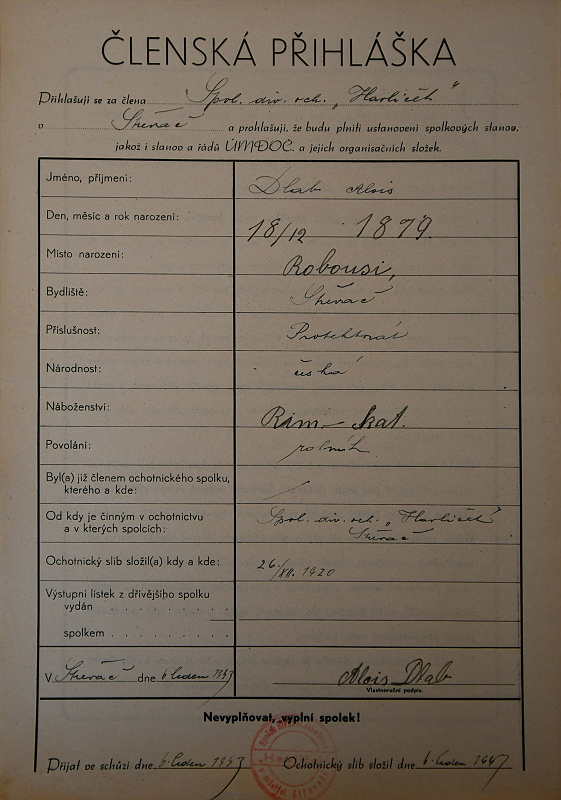 ČLENSKÁ PŘIHLÁŠKA
Přihlašuji se za člena Spol. div. och. „Havlíček“
v Střevač a prohlašuji, že budu plniti ustanovení spolkových stanov,
jakož i stanov a řádů ÚMDOC. a jejich organisačních složek.
Jméno, příjmení: Dlab Alois
Den, měsíc a rok narození: 18/12 1879.
Místo narození: Robousi,
Bydliště: Střevač
Příslušnost: Protektorát
Národnost: česká
Náboženství: Řím-kat.
Povolání: rolník
Byl(a) již členem ochotnického spolku,
kterého a kde: /
Od kdy je činným v ochotnictvu Spol. div. och. „Havlíček“
a v kterých spolcích: Střevač
Ochotnický slib složil(a) kdy a kde: 26/XII. 1920
Výstupní lístek z dřívějšího spolku
vydán . . . . . . . . . . . .
spolkem . . . . . . . . . .
V Střevač dne 6 leden 1943 Alois Dlab
Vlastnoruční podpis.
Nevyplňovat, vyplní spolek!
Přijat ve schůzi dne 6. leden 1943 Ochotnický slib složil dne 6. leden 1943